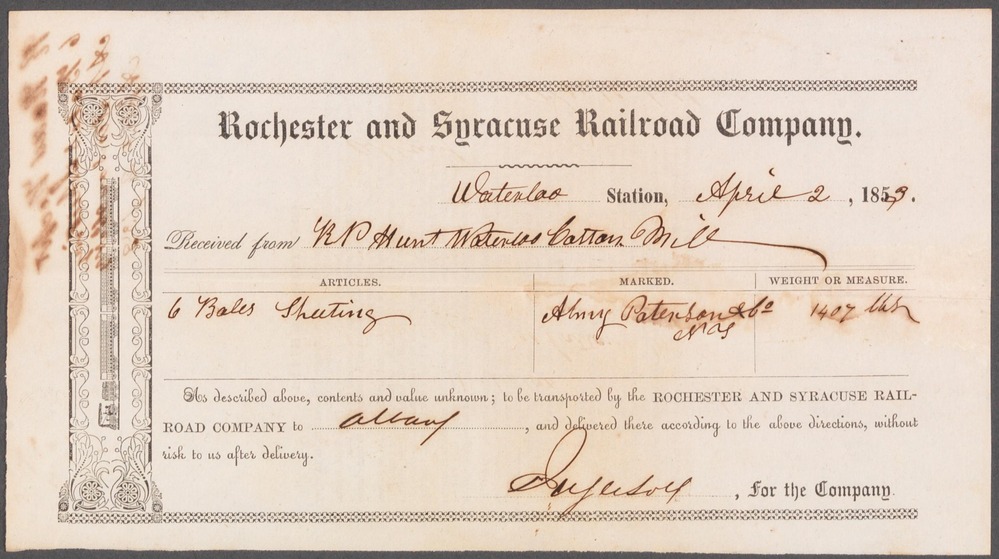 Rochester and Syracuse Railroad Company.
Waterloo Station, April 2, 1853.
Received from R P Hunt Waterloo Cotton Mill
ARTICLES. MARKED. WEIGHT OR MEASURE.
6 Bales Sheeting Almy Paterson & Co 1407 lbs
N Y
As described above, contents and value unknown; to be transported by the ROCHESTER AND SYRACUSE RAIL-
ROAD COMPANY to Albany, and delivered there according to the above directions, without
risk to us after delivery.
Ingersoll, For the Company.